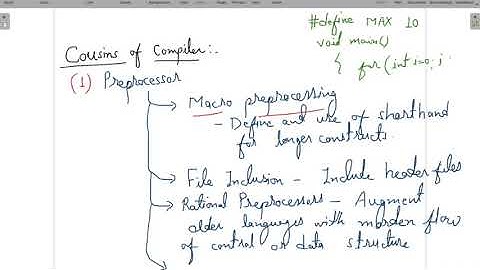 Cousins of Compiler:-
#define MAX 10
void main()
{ for (int i=0; j
(1) Preprocessor
Macro preprocessing
- Define and use of shorthand
for longer constructs.
File Inclusion - Include header files
Rational Preprocessors - Augment
older languages with morden flow
of control or data structure